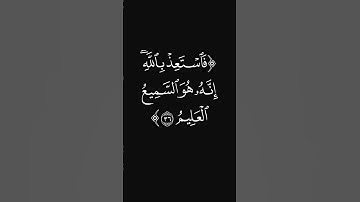 ﴿فَٱسۡتَعِذۡ بِٱللَّهِۖ
إِنَّهُۥ هُوَ ٱلسَّمِيعُ
ٱلۡعَلِيمُ ٣٦﴾